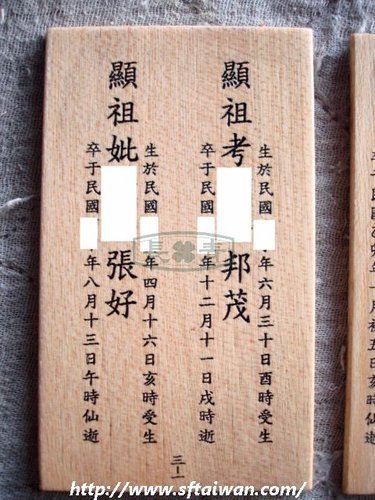 生於民國年六月三十日酉時受生
顯祖考邦茂
卒于民國年十二月十一日戌時逝
生於民國年四月十六日亥時受生
顯祖妣張好
卒于民國年八月十三日午時仙逝
三-1
長青
http://www.sftaiwan.com/